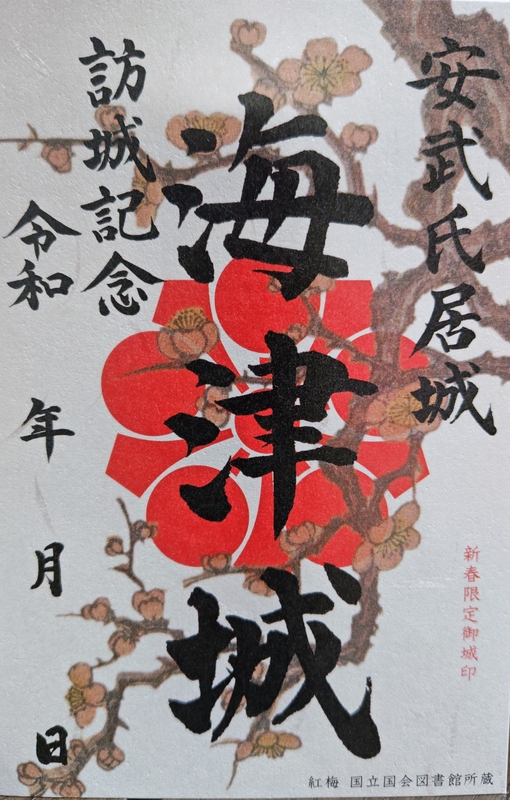 安武氏居城
海津城
訪城記念
令和 年 月 日
新春限定御城印
紅梅 国立国会図書館所蔵